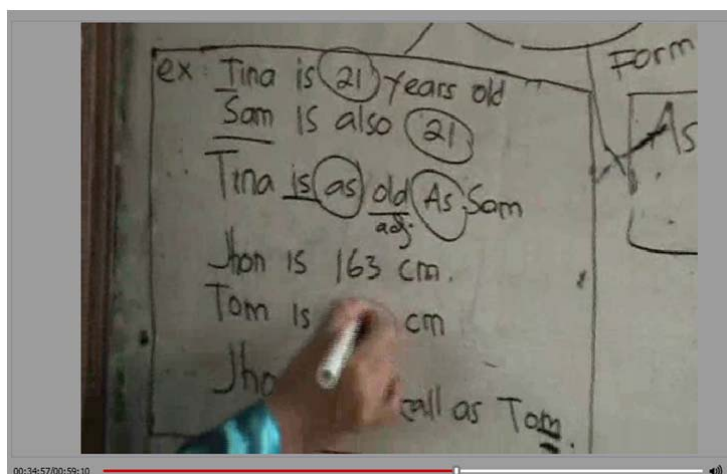 ex: Tina is 21 years old
Sam is also 21
Tina is as old As Sam
adj.
Jhon is 163 cm.
Tom is cm
Jho as Tom.
Form
As
00:34:57/00:59:10